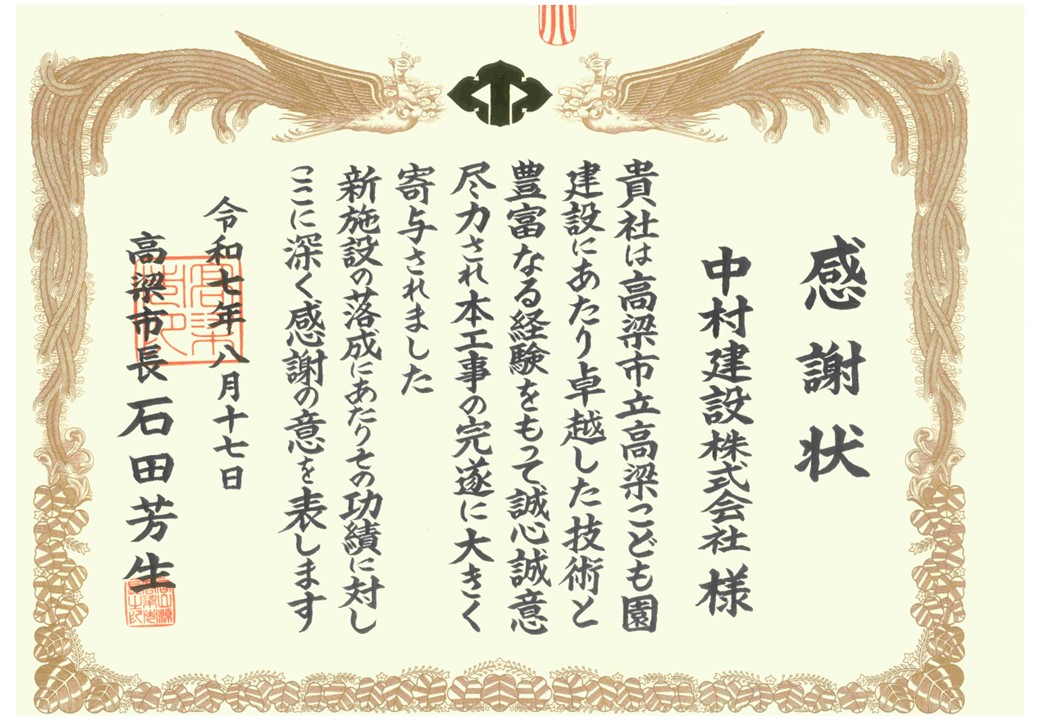 感謝状
中村建設株式会社 様
貴社は高梁市立高梁こども園
建設にあたり卓越した技術と
豊富なる経験をもって誠心誠意
尽力され本工事の完遂に大きく
寄与されました
新施設の落成にあたりその功績に対し
ここに深く感謝の意を表します
令和七年八月十七日
高梁市長 石田芳生